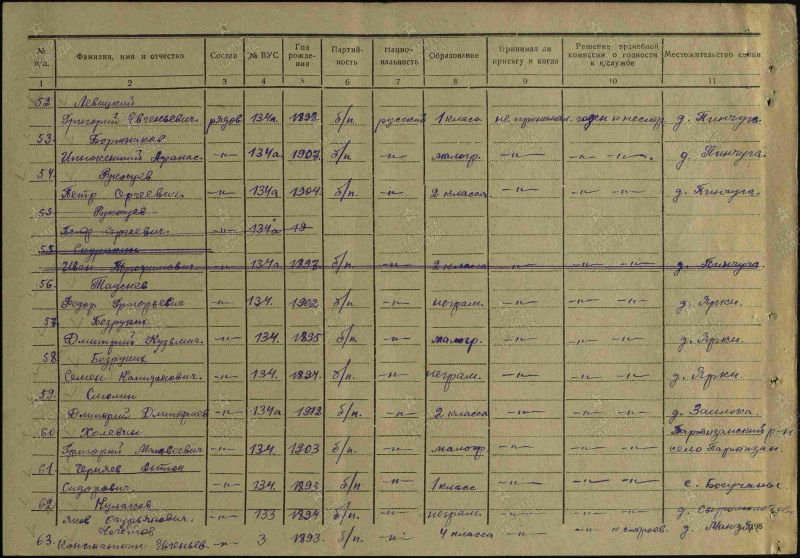 № п/п. Фамилия, имя и отчество Состав № ВУС Год рождения Партийность Национальность Образование Принимал ли присягу и когда Решение врачебной комиссии о годности к в/службе Местожительство семьи
1 2 3 4 5 6 7 8 9 10 11
52. Левицкий
Григорий Евгеньевич. рядов 134а. 1892. б/п. русский 1 класс. не принимал. годен к нестр. д. Пинчуга
53. Бортников
Иннокентий Афанас. -"- 134а. 1907. б/п. -"- малогр. -"- -"- -"-. д. Пинчуга.
54. Рукосуев
Петр Сергеевич. -"- 134а 1904. б/п. -"- 2 класса -"- -"- -"- д. Пинчуга.
55 Рукосуев
Петр Сергеевич. -"- 134а 19
55
Иван Трофимович. -"- 134а 1897 б/п. -"- 2 класса -"- -"- -"- д. Пинчуга
56.
Федор Григорьевич -"- 134. 1902 б/п -"- неграм. -"- -"- -"- д. Ярки.
57. Безруких
Дмитрий Кузьмич. -"- 134. 1895 б/п. -"- малогр. -"- -"- -"- д. Ярки.
58. Безруких
Семен -"- 134. 1894. б/п. -"- неграм. -"- -"- -"- д. Ярки.
59. Смолин
Дмитрий Дмитриев -"- 134а 1912 б/п. -"- 2 класса -"- -"- -"- д. Заимка.
60. Партизанский р-н
Григорий Матвеевич -"- 134. 1903 б/п. -"- малогр. -"- -"- -"- село Партизан.
61 Черняев Антон
Сидорович. -"- 134. 1893 б/п. -"- 1 класс -"- -"- -"- с. Богучаны
62 Кулаков
Яков -"- 133 1894 б/п. -"- неграм. -"- -"- -"- д.
63. Константин Евгеньев. -"- 3 1893. б/п. -"- 4 класса -"- -"- к строев. д.